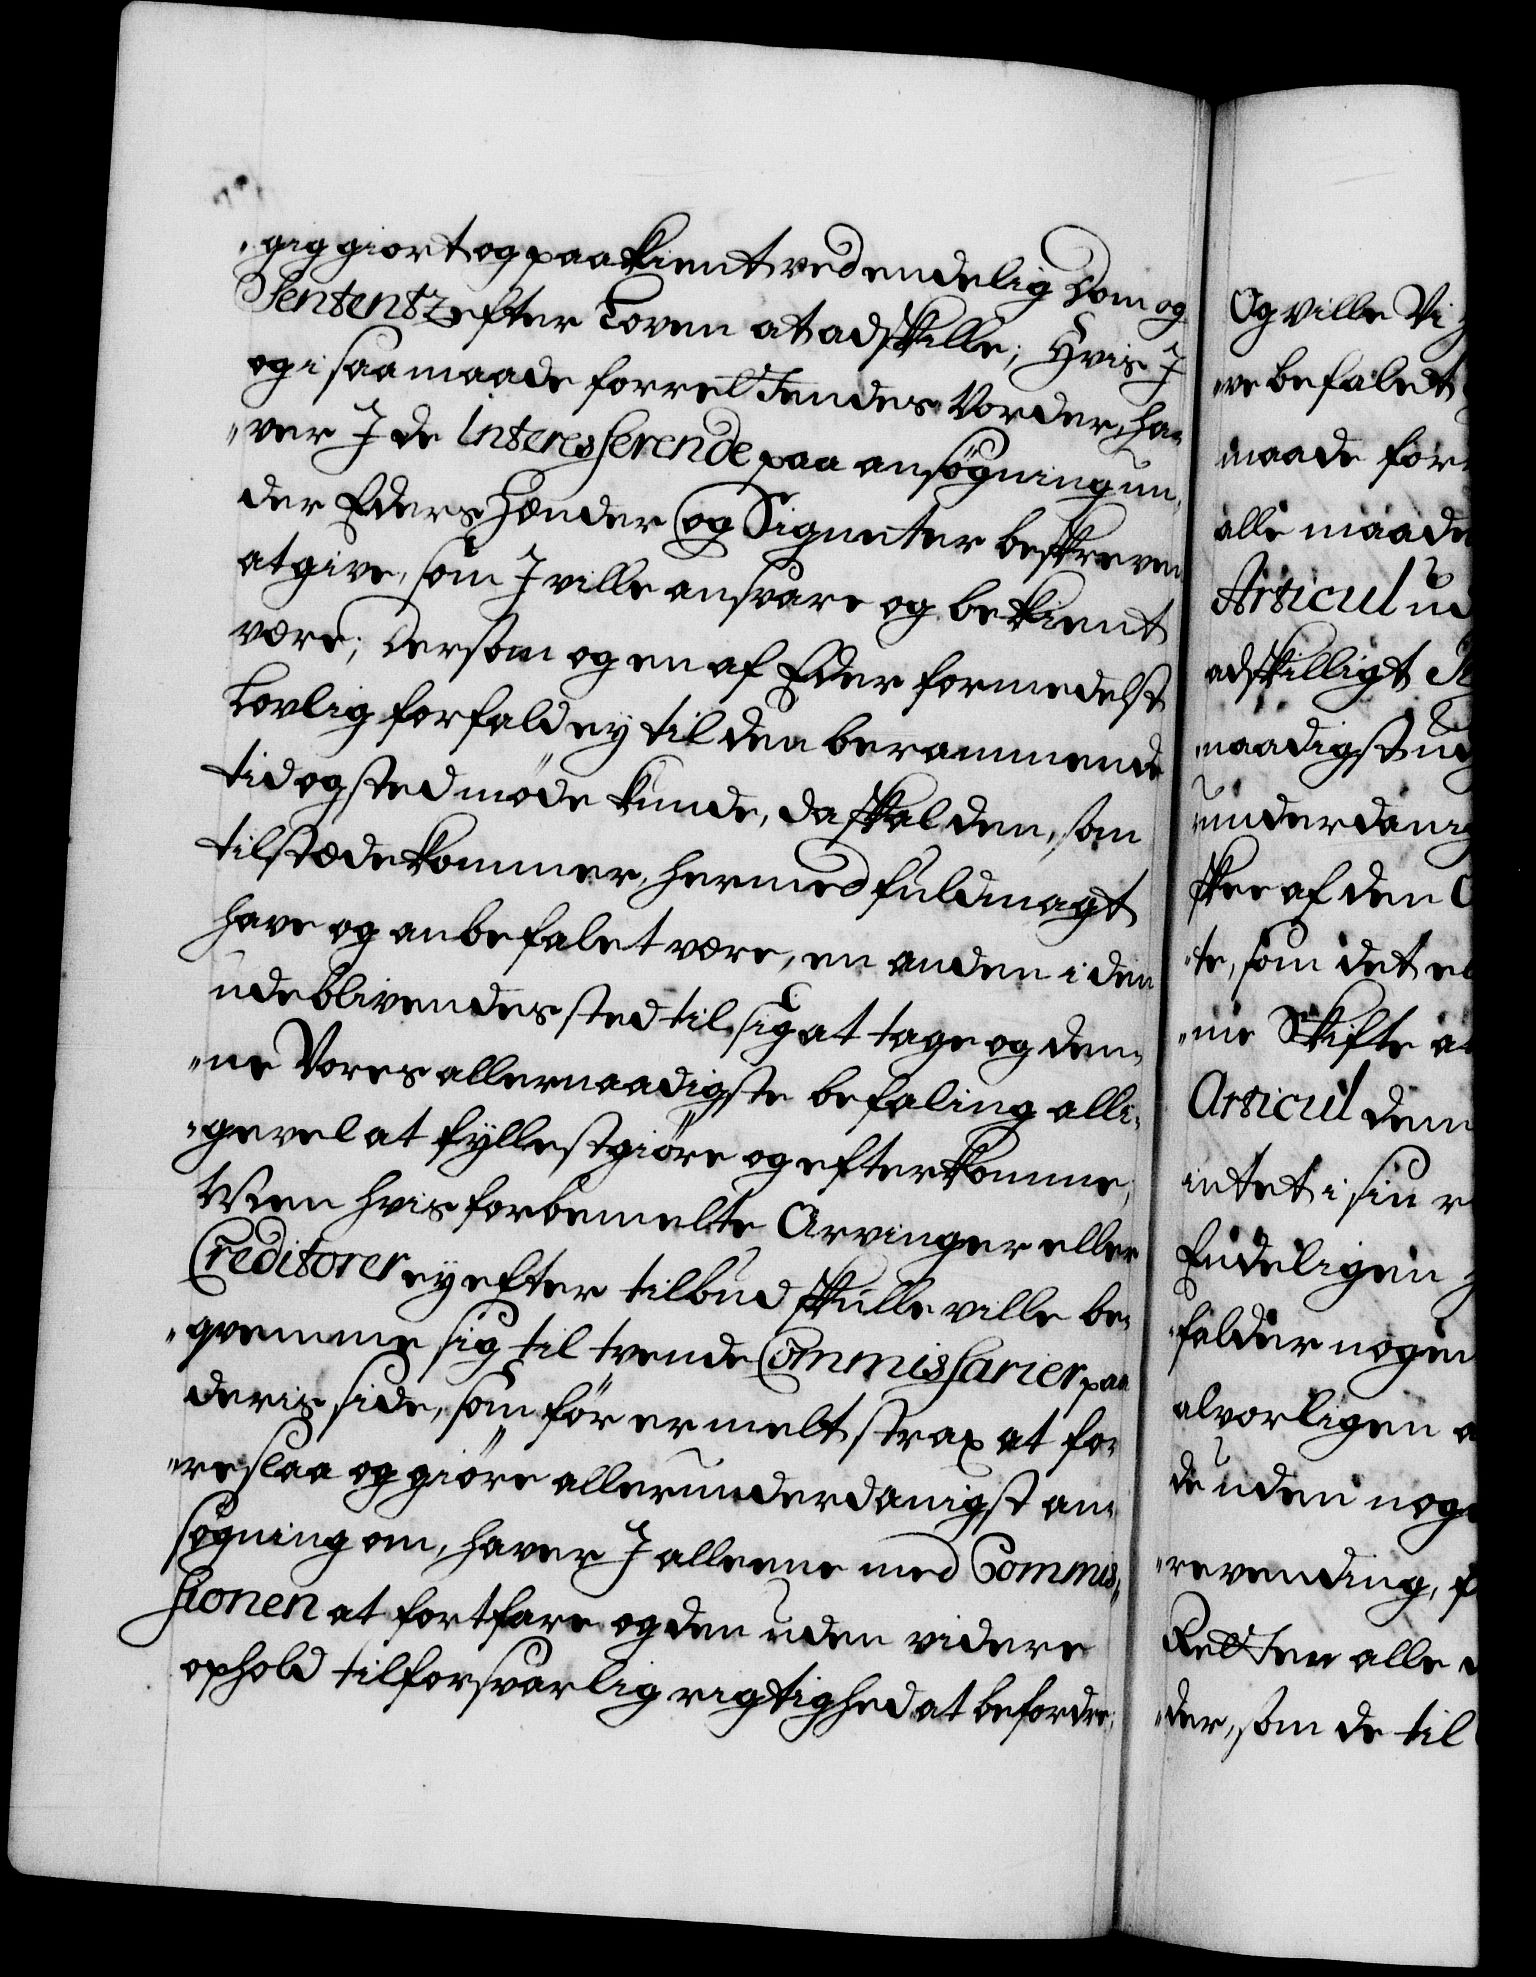 "gig giort og paakient ved endelig Dom og
Sententz efter Loven at adskille; Hvis I
og i saa maade forrettendes vorder, ha-
"ver I de Interesserende paa ansøgning un-
der Eders Hænder og Signeter beskreven
at give, som I ville ansvare og bekient
være; Dersom og en af Eder formedelst
Lovlig forfald ey til den berammende
tid og sted møde kunde, da skal den, som
tilstæde kommer, hermed fuldmagt
have og anbefalet være, en anden i den
udeblivendes sted til sig at tage og den-
"ne Vores allernaadigste befaling alli-
"gevel at fyllestgiøre og efterkomme;
Men hvis forbemelte Arvinger eller
Creditorer ey efter tilbud skulle ville be-
"qvemme sig til tvende Commissarier paa
deris side, som før er melt strax at fo-
"reslaa og giøre allerunderdanigst an-
søgning om, haver I alleene med Commis-
sionen at fortfare og den uden videre
ophold til forsvarlig rigtighed at befordre;
Og ville Vi
"ve befalet
maade for
alle maade
Articul ud
adskilligt
"naadigst ud
underdanig
skee af den
"te, som det el
"me Skifte at
Articul dem
intet i sin
Endeligen
"falder nogen
alvorligen
de uden noge
"revending,
Retten alle
"der, som de til